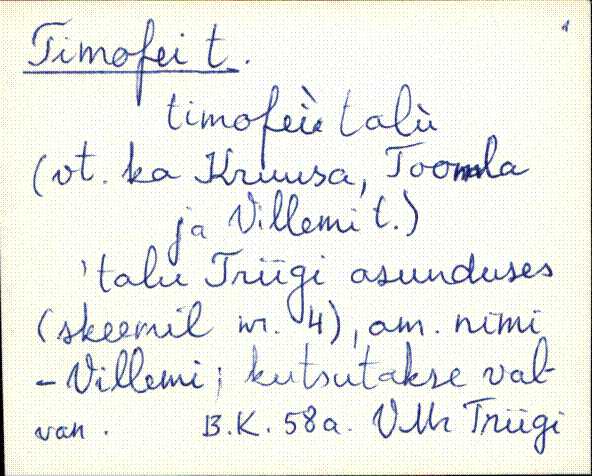 1
Timofei t.
timofeiì talù
(vt. ka Kruusa, Toomla
ja Villemi t.)
'talu Triigi asunduses
(skeemil nr. 4), am. nimi
- Villemi; kutsutakse val-
van. B.K. 58a. VMr Triigi